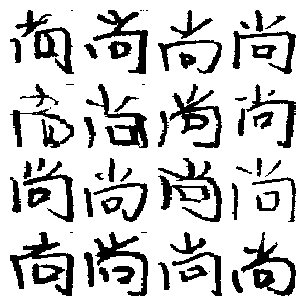 尚尚尚尚
尚尚尚尚
尚尚尚尚
尚尚尚尚